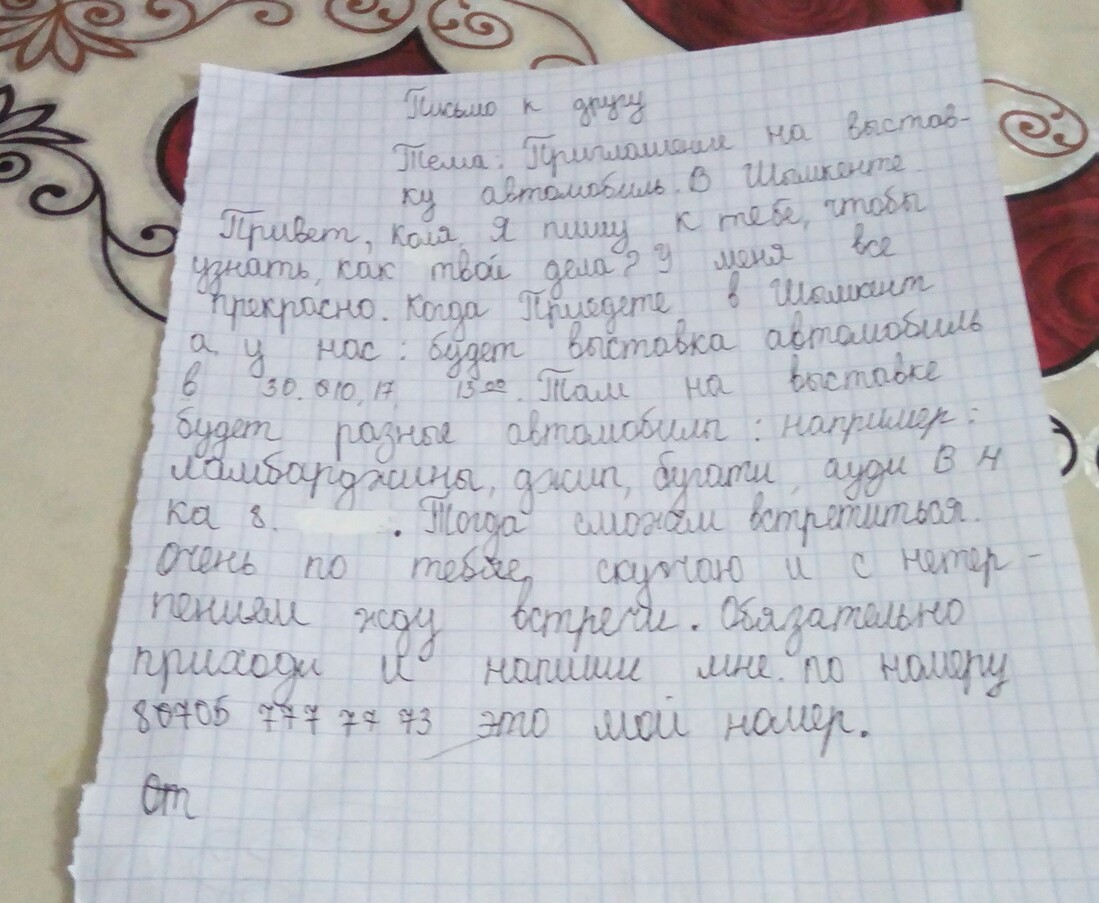 Письмо к другу
Тема: Приглашение на выстав-
ку автомобиль. В Шымкенте.
Привет, Коля. Я пишу к тебе, чтобы
узнать, как твои дела? У меня все
прекрасно. Когда Приедете в Шымкент
а, у нас: будет выставка автомобиль
в 30. 010, 17, 15 00. Там на выставке
будет разные автомобилы: например:
ламбарджины, джип, бугати, ауди В Н
ка 8. . Тогда сможем встретиться.
Очень по тебе, скучаю и с нетер-
пением жду встречи. Обязательно
приходи и напиши мне. по номеру
80705 777 77 73 это мой номер.
От